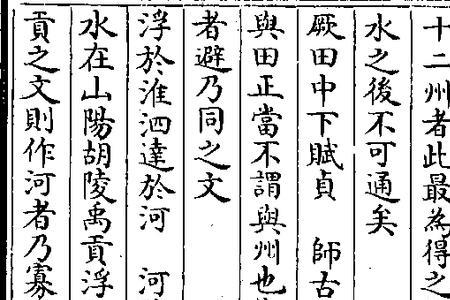 十二州者此最為得之
水之後不可通矣
厥田中下賦貞　師古
與田正當不謂與州也
者避乃同之文
浮於淮泗達於河　河
水在山陽胡陵禹貢浮
貢之文則作河者乃寡